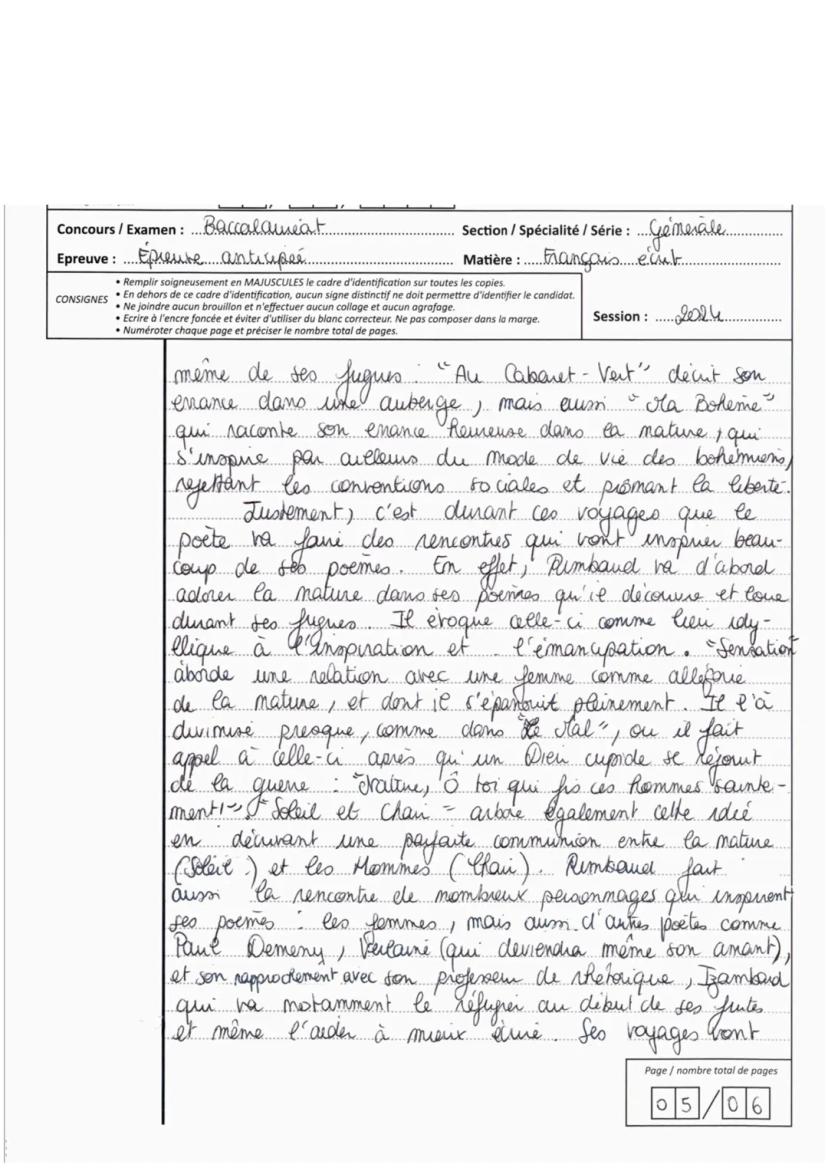 Concours / Examen : Baccalauréat Section / Spécialité / Série : Générale
Epreuve : Épreuve anticipée Matière : Français écrit
CONSIGNES
• Remplir soigneusement en MAJUSCULES le cadre d'identification sur toutes les copies.
• En dehors de ce cadre d'identification, aucun signe distinctif ne doit permettre d'identifier le candidat.
• Ne joindre aucun brouillon et n'effectuer aucun collage et aucun agrafage.
• Ecrire à l'encre foncée et éviter d'utiliser du blanc correcteur. Ne pas composer dans la marge.
• Numéroter chaque page et préciser le nombre total de pages.
Session : 2024
même de ses fugues : "Au Cabaret-Vert" décrit son
errance dans une auberge, mais aussi "Ma Bohème"
qui raconte son errance heureuse dans la nature, qui
s'inspire par ailleurs du mode de vie des bohémiens,
rejettant les conventions sociales et prônant la liberté.
Justement, c'est durant ces voyages que le
poète va faire des rencontres qui vont inspirer beau-
coup de ses poèmes. En effet, Rimbaud va d'abord
adorer la nature dans ses poèmes qu'il découvre et loue
durant ses fugues. Il évoque celle-ci comme lieu idy-
llique à l'inspiration et l'émancipation. "Sensation"
aborde une relation avec une femme comme allégorie
de la nature, et dont il s'épanouit pleinement. Il l'à
divinisé presque, comme dans "Le Mal", ou il fait
appel à celle-ci après qu'un Dieu cupide se réjouit
de la guerre : "Nature, Ô toi qui fis ces hommes sainte-
ment!" "Soleil et Chair" arbore également cette idée
en décrivant une parfaite communion entre la nature
(Soleil) et les Hommes (Chair). Rimbaud fait
aussi la rencontre de nombreux personnages qui inspirent
ses poèmes : les femmes, mais aussi d'autres poètes comme
Paul Demeny, Verlaine (qui deviendra même son amant),
et son rapprochement avec son professeur de rhétorique, Izambard
qui va notamment le réfugier au début de ses fuites
et même l'aider à mieux écrire. Ses voyages vont
Page / nombre total de pages
05/06